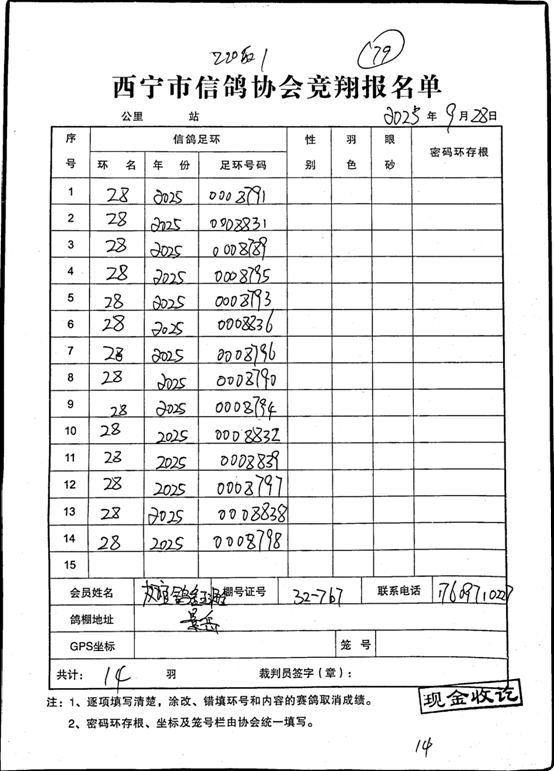 220 1
79
西宁市信鸽协会竞翔报名单
公里 站 2025 年 9 月 28 日
序号 信鸽足环 性别 羽色 眼砂 密码环存根
环 名 年 份 足环号码
1 28 2025 0008791
2 28 2025 0008831
3 28 2025 0008789
4 28 2025 0008795
5 28 2025 0008793
6 28 2025 0008836
7 28 2025 0008796
8 28 2025 0008790
9 28 2025 0008794
10 28 2025 0008832
11 28 2025 0008839
12 28 2025 0008797
13 28 2025 0008838
14 28 2025 0008798
15
会员姓名 棚号证号 32-767 联系电话
鸽棚地址
GPS坐标 笼 号
共计： 14 羽 裁判员签字（章）：
现金收讫
注：1、逐项填写清楚，涂改、错填环号和内容的赛鸽取消成绩。
2、密码环存根、坐标及笼号栏由协会统一填写。
14